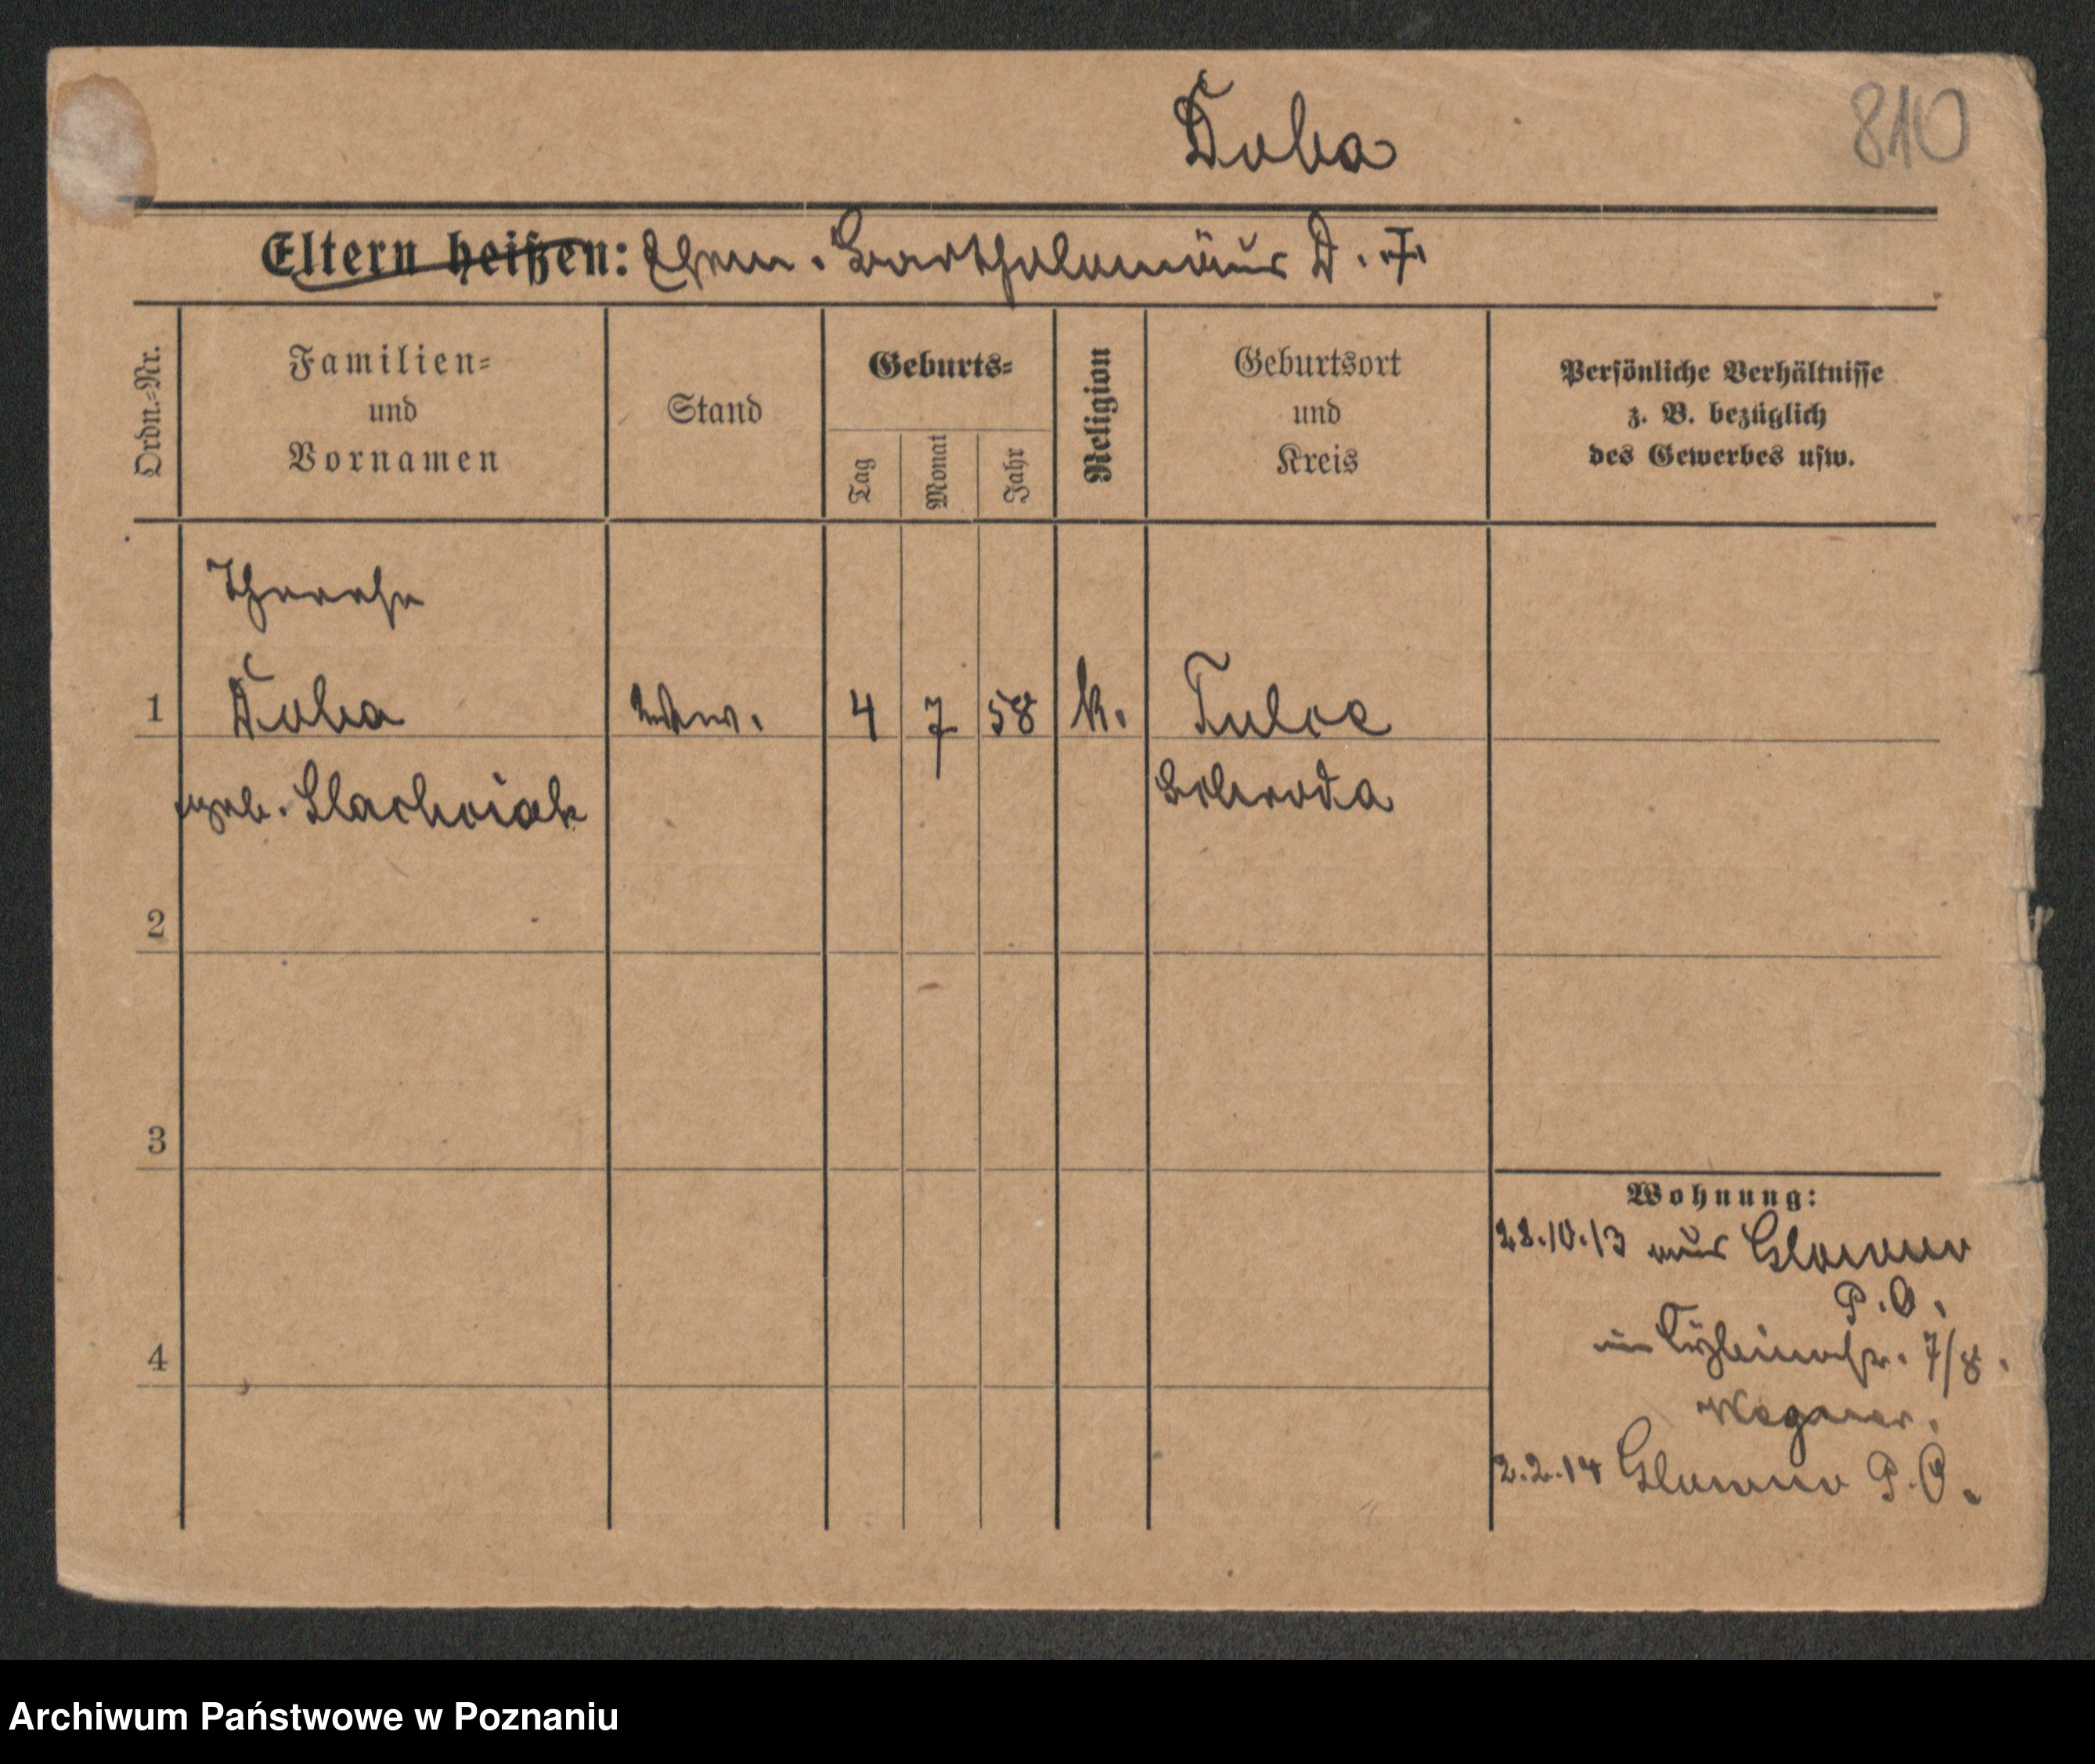 Doba
810
Eltern heißen: Ehem. Bartholomäus D. †
Ordn.-Nr.
Familien=
und
Vornamen
Stand
Geburts=
Tag
Monat
Jahr
Religion
Geburtsort
und
Kreis
Persönliche Verhältnisse
z. B. bezüglich
des Gewerbes usw.
Therese
1 Doba Wwe. 4 7 58 k. Tulce
geb. Schroda
2
3
Wohnung:
28.10.13 aus Glowno
P.O.
in 7/8.
4
Wegner.
2.2.14 Glowno P.O.
Archiwum Państwowe w Poznaniu